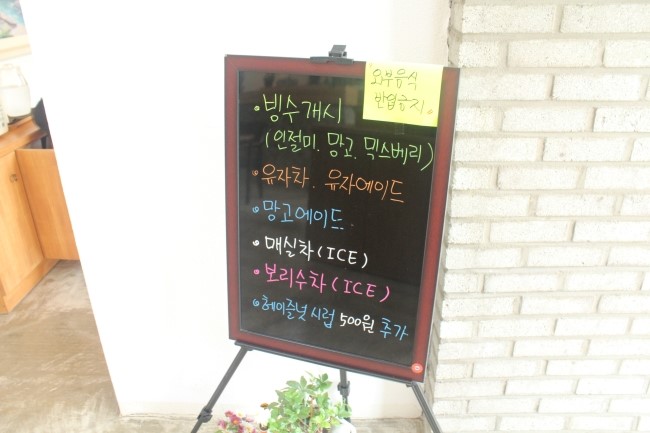 외부음식
반입금지.
• 빙수 개시
(인절미. 망고. 믹스베리)
• 유자차. 유자에이드
• 망고에이드.
• 매실차(ICE)
• 보리수차(ICE)
• 헤이즐넛 시럽 500원 추가